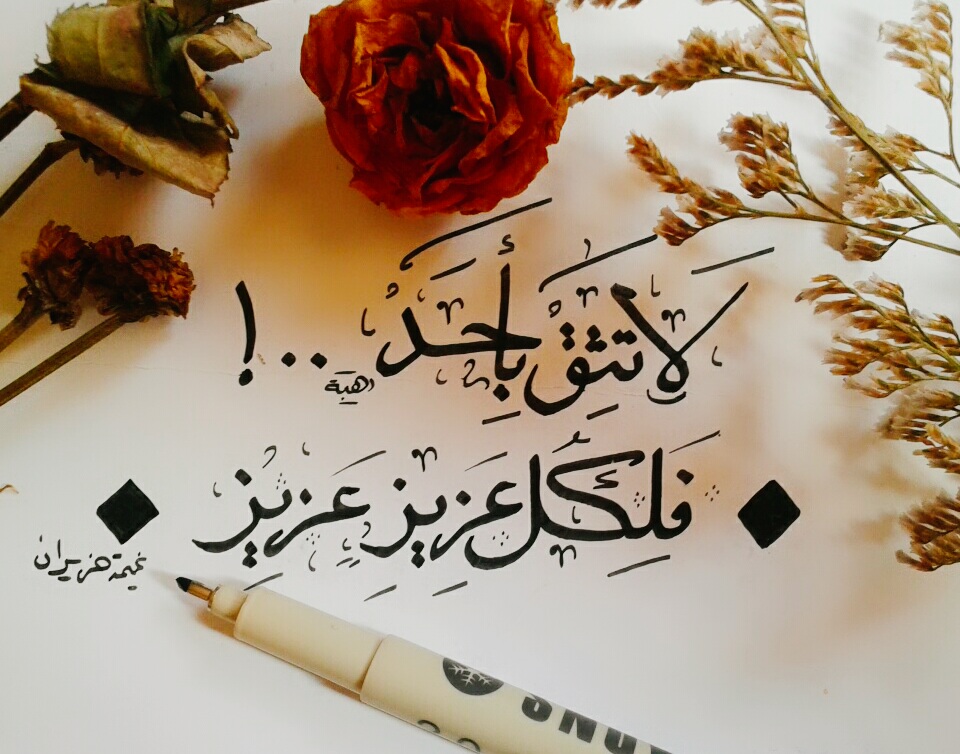 لَا تَثِقْ بِأَحَدْ ..!
هبة
فَلِكُلِ عَزِيزٍ عَزِيزْ
غيمة حزيران
SNOW